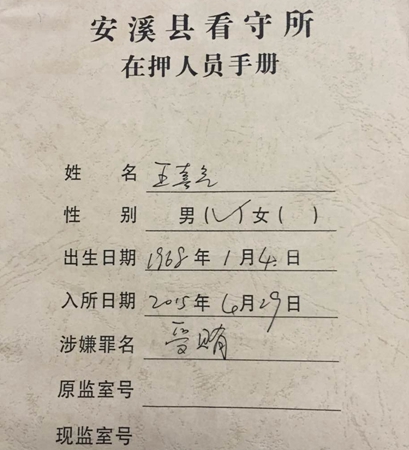 安溪县看守所
在押人员手册
姓 名 王喜
性 别 男(✓)女( )
出生日期 1968年1月4日
入所日期 2015年6月29日
涉嫌罪名 受贿
原监室号
现监室号